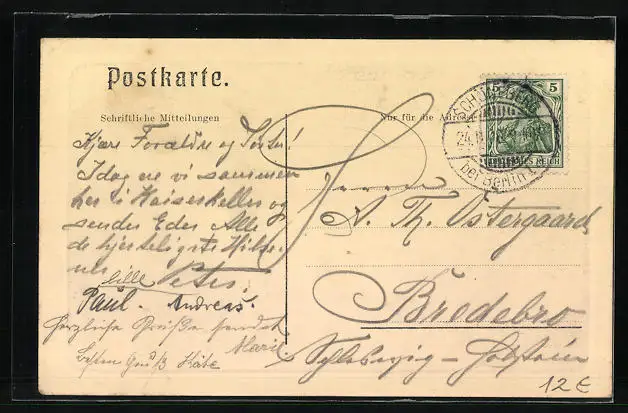 Postkarte.
Schriftliche Mitteilungen
Nur für die Adresse
Kjære Forældre og Søstre!
Idag ere vi sammen
her i Kaiserkeller og
sender Eder Alle
de hjerteligste Hilse-
ner
lille Peter,
Paul. Andreas.
Herzliche Grüße sendet
Marie.
Besten Gruß Käte
SCHÖNEBERG
bei Berlin
5 5
DEUTSCHES REICH
Herrn
A. Th. Östergaard
Bredebro
Schleswig-Holstein
12 €